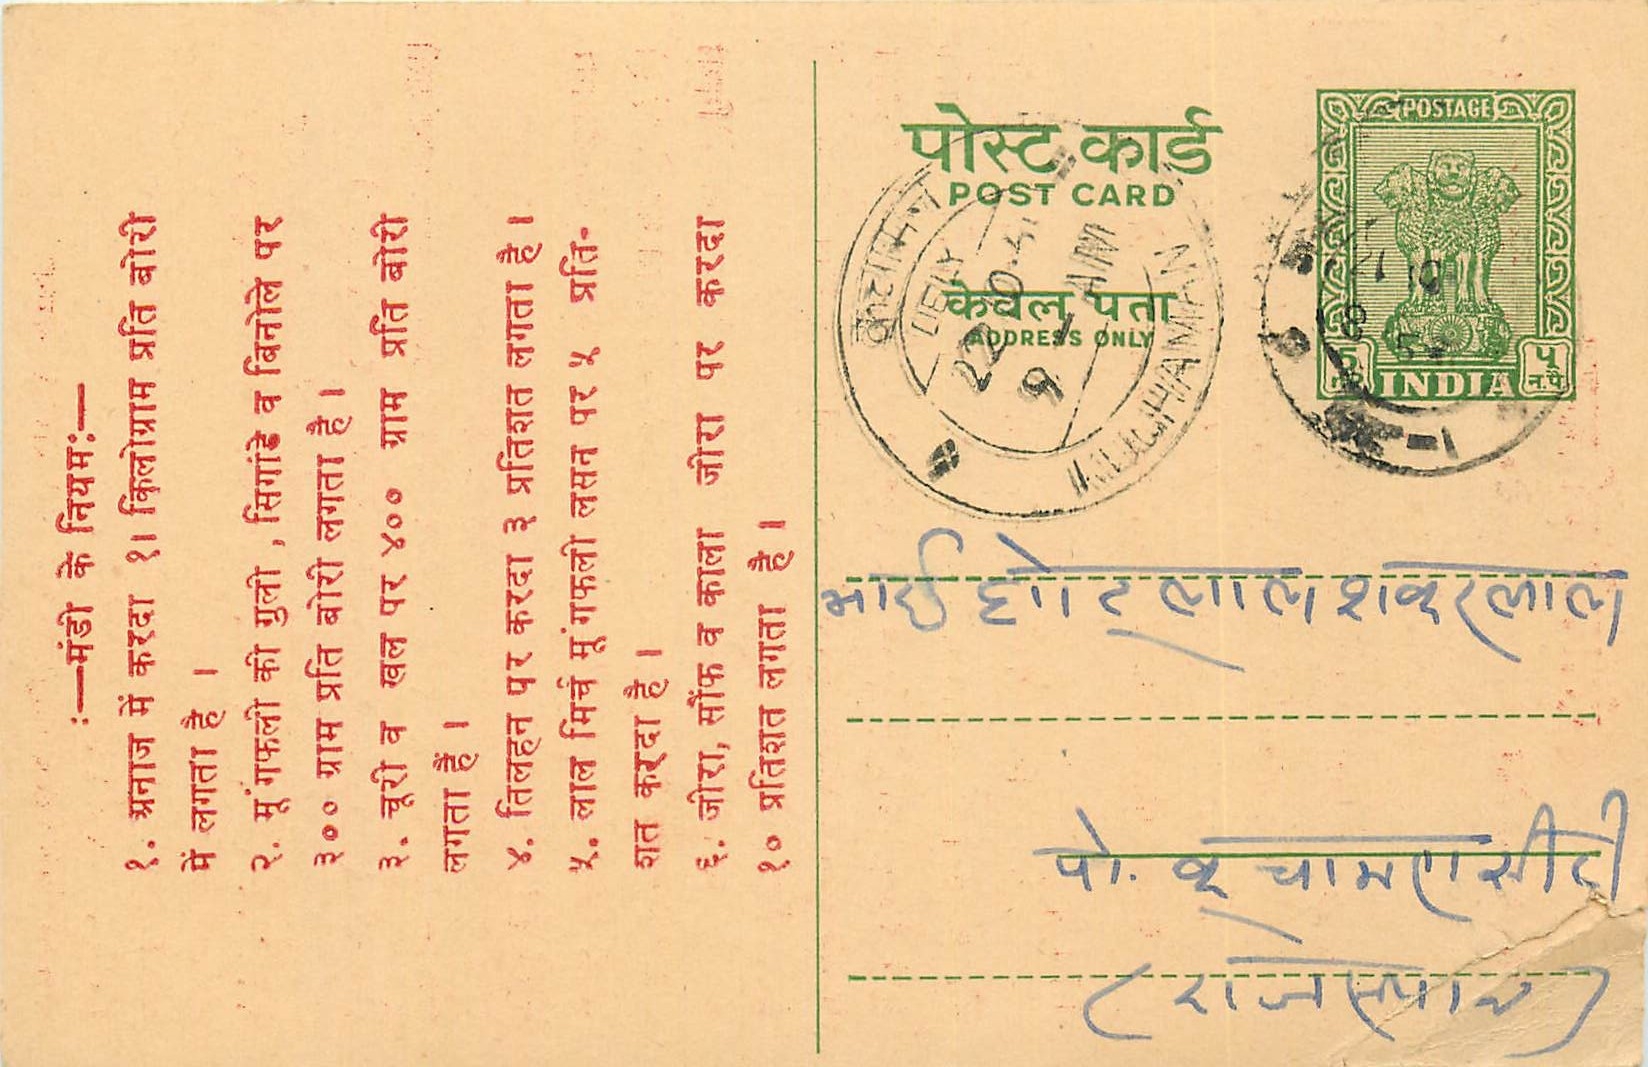 :—मंडी के नियम:—
१. अनाज में करदा १। किलोग्राम प्रति बोरी
में लगता है ।
२. मूंगफली की गुली , सिगाड़े व बिनोले पर
३०० ग्राम प्रति बोरी लगता है ।
३. चूरी व खल पर ४०० ग्राम प्रति बोरी
लगता है ।
४. तिलहन पर करदा ३ प्रतिशत लगता है ।
५. लाल मिर्च मूंगफली लसन पर ४ प्रति-
शत करदा है ।
६. जीरा, सौंफ व काला जीरा पर करदा
१० प्रतिशत लगता है ।
पोस्ट कार्ड
POST CARD
केवल पता
ADDRESS ONLY
POSTAGE
५
न.पै.
INDIA
DELY
22
AM
KUCHAMAN
भाई छोटूलाल शंकरलाल
पो. कूचामणसीटी
(राजस्थान)